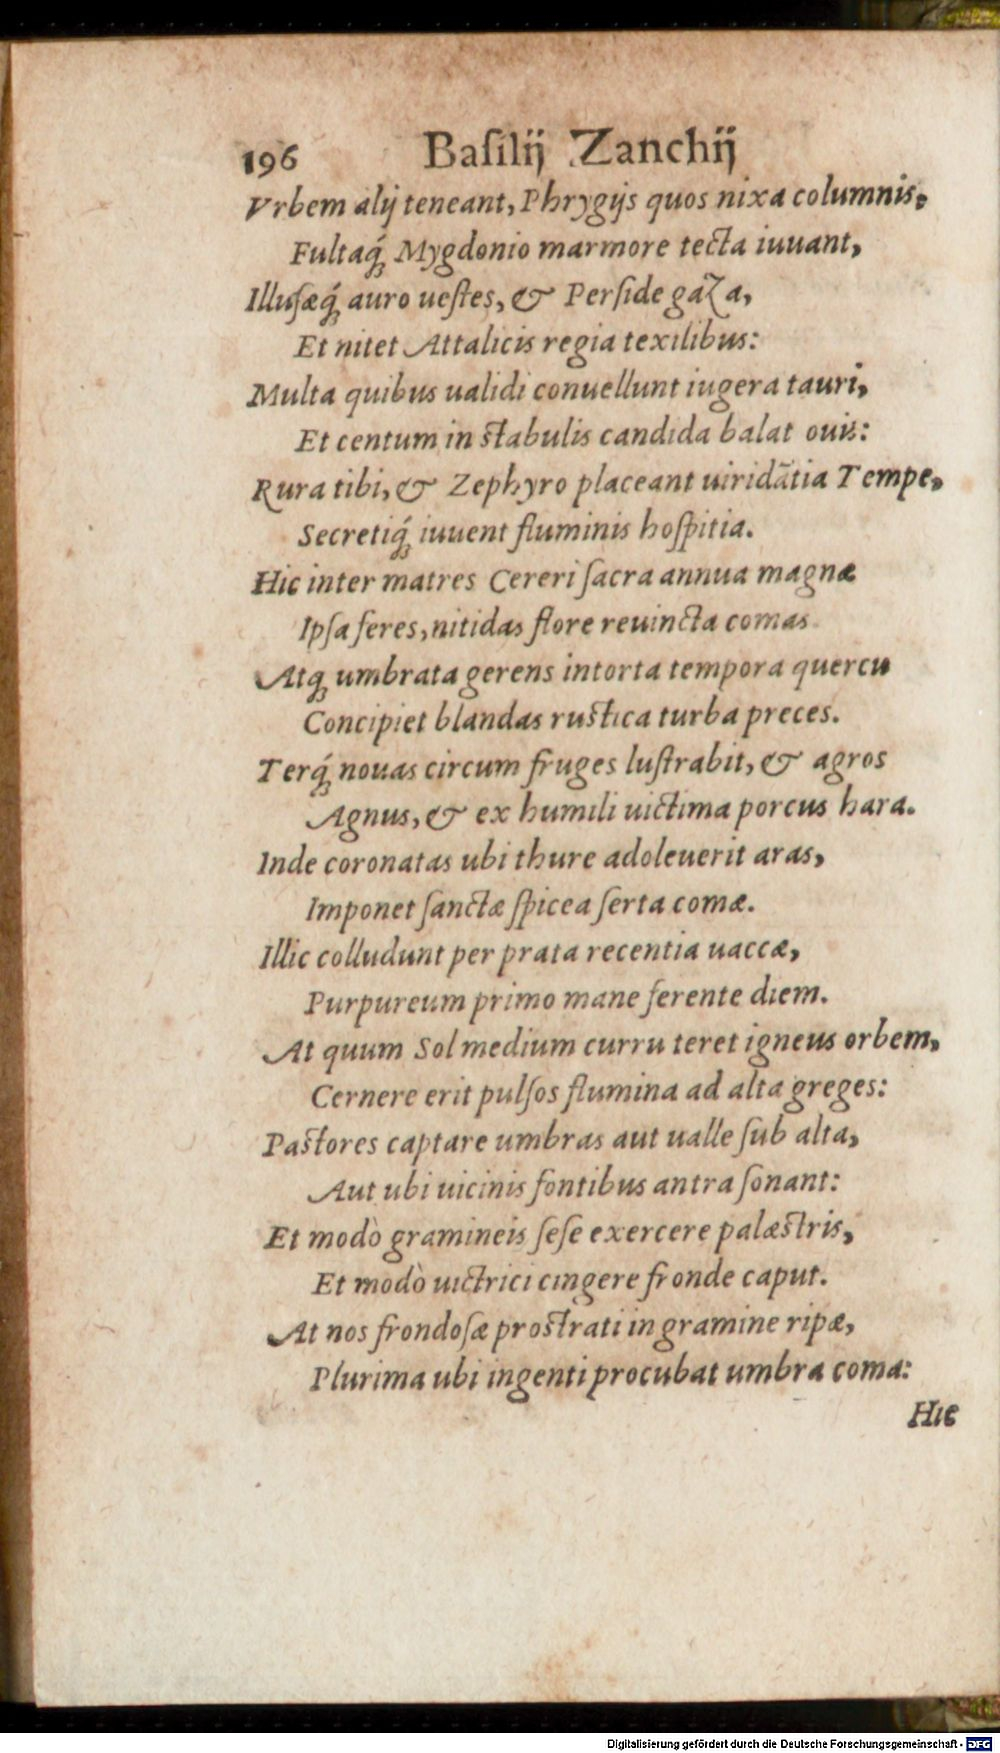 196 Baſilij Zanchij
Vrbem alij teneant, Phrygijs quos nixa columnis,
Fultaq́ꝫ Mygdonio marmore tecta iuuant,
Illuſæq́ꝫ auro ueſtes, & Perſide gaza,
Et nitet Attalicis regia texilibus:
Multa quibus ualidi conuellunt iugera tauri,
Et centum in ſtabulis candida balat ouis:
Rura tibi, & Zephyro placeant uiridātia Tempe,
Secretiq́ꝫ iuuent fluminis hoſpitia.
Hic inter matres Cereri ſacra annua magnæ
Ipſa feres, nitidas flore reuincta comas.
Atqꝫ umbrata gerens intorta tempora quercu
Concipiet blandas ruſtica turba preces.
Terq́ꝫ nouas circum fruges luſtrabit, & agros
Agnus, & ex humili uictima porcus hara.
Inde coronatas ubi thure adoleuerit aras,
Imponet ſanctæ ſpicea ſerta comæ.
Illic colludunt per prata recentia uaccæ,
Purpureum primo mane ferente diem.
At quum Sol medium curru teret igneus orbem,
Cernere erit pulſos flumina ad alta greges:
Paſtores captare umbras aut ualle ſub alta,
Aut ubi uicinis fontibus antra ſonant:
Et modò gramineis ſeſe exercere palæſtris,
Et modò uictrici cingere fronde caput.
At nos frondoſæ proſtrati in gramine ripæ,
Plurima ubi ingenti procubat umbra coma:
Hic
Digitalisierung gefördert durch die Deutsche Forschungsgemeinschaft - DFG